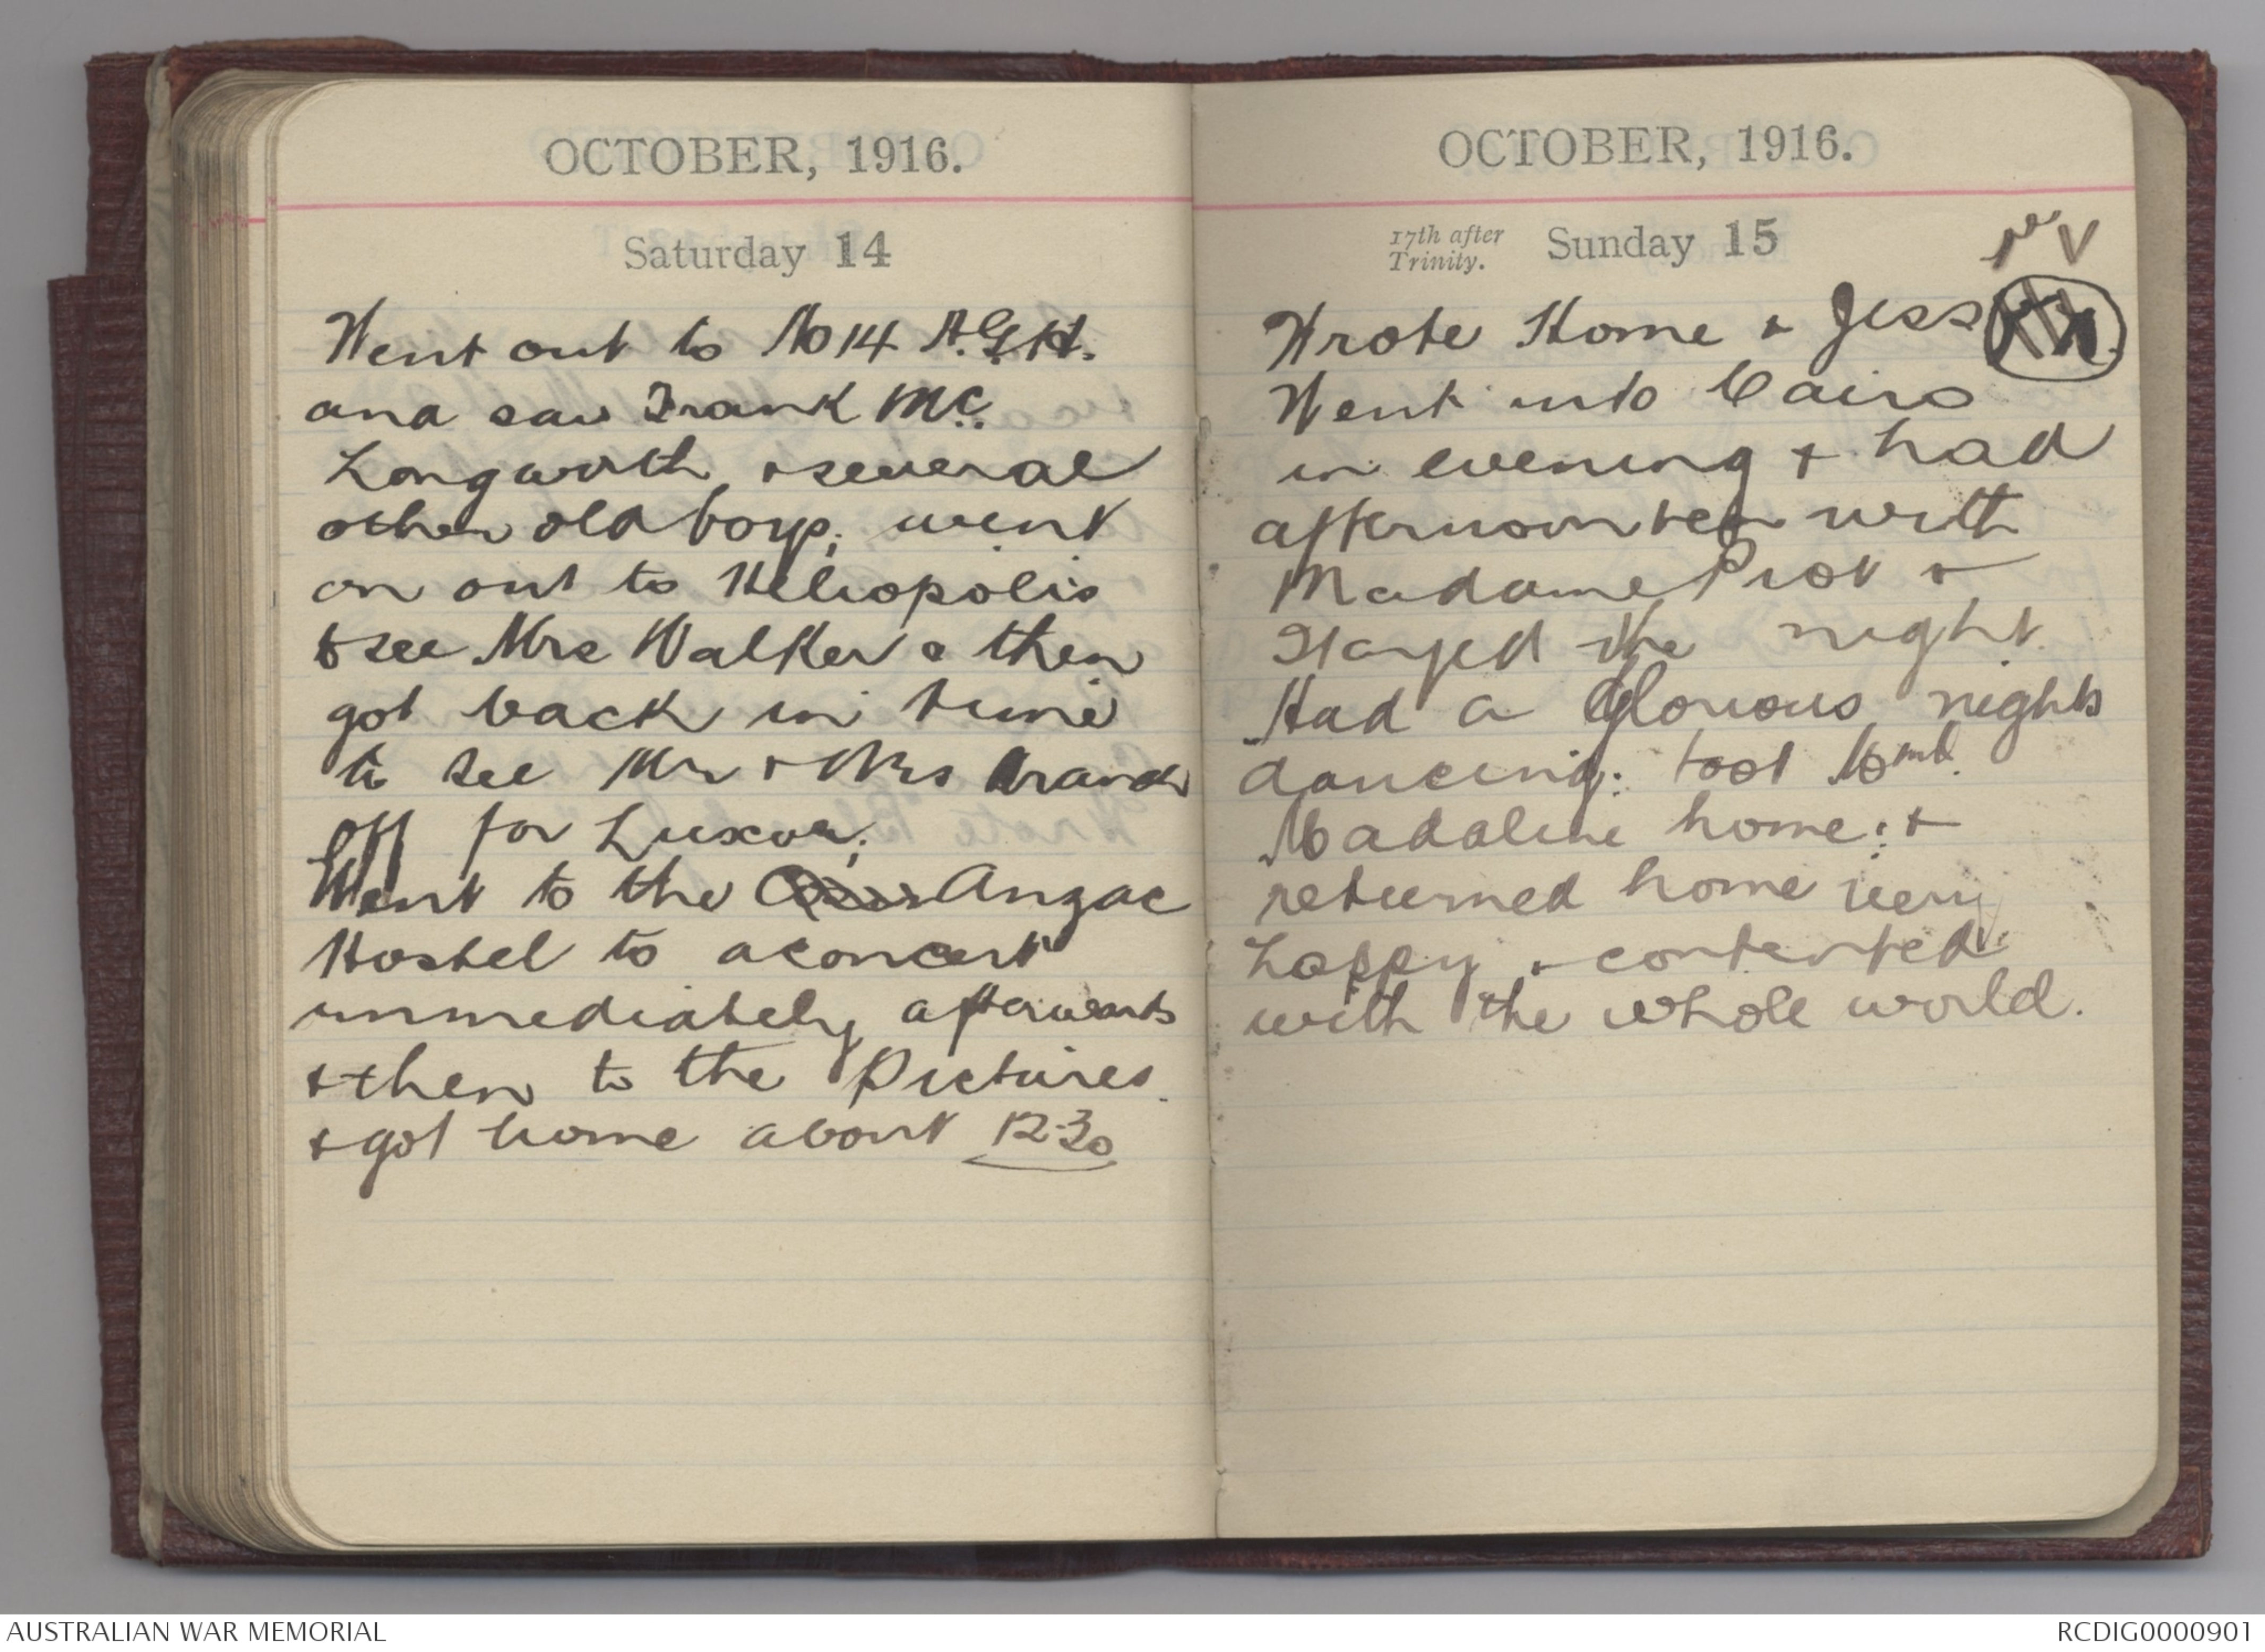 OCTOBER, 1916.
Saturday 14
Went out to No 14 A.G.H.
and saw Frank Mc.
Longworth, & several
other old boys; went
on out to Heliopolis
to see Mrs Walker & then
got back in time
to see Mr & Mrs Brand
off for Luxor;
Went to the Anzac
Hostel to a concert
immediately afterwards
& then to the Pictures.
& got home about 12.30
OCTOBER, 1916.
17th after
Trinity.
Sunday 15
Wrote Home & Jess
Went into Cairo
in evening & had
afternoon tea with
Madame Piot &
Stayed the night.
Had a Glorious nights
dancing: took
Madaline home: &
returned home very
happy & contented
with the whole world.
AUSTRALIAN WAR MEMORIAL
RCDIG0000901